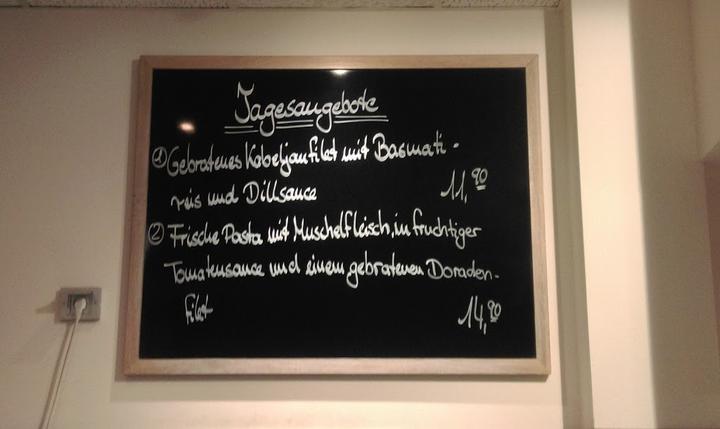 Tagesangebote
① Gebratenes Kabeljaufilet mit Basmati-
reis und Dillsauce 11,90
② Frische Pasta mit Muschelfleisch, in fruchtiger
Tomatensauce und einem gebratenen Doraden-
filet 14,90